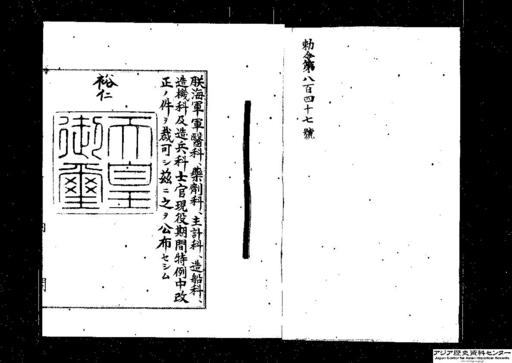 勅令第八百四十七號
朕海軍軍醫科、藥劑科、主計科、造船科、
造機科及造兵科士官現役期間特例中改
正ノ件ヲ裁可シ茲ニ之ヲ公布セシム
裕仁
天皇
御璽
内閣
アジア歴史資料センター
Japan Center for Asian Historical Records